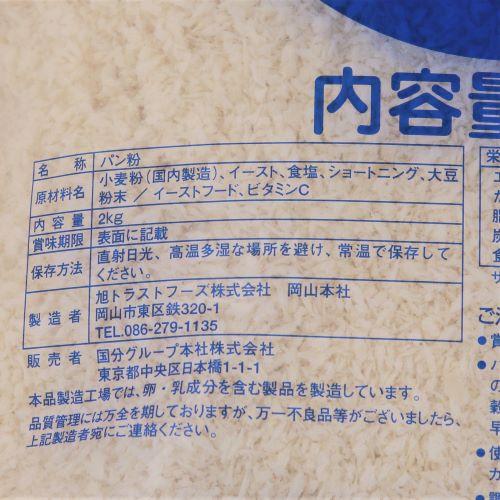 内容量
名称 パン粉
原材料名 小麦粉(国内製造)、イースト、食塩、ショートニング、大豆
粉末 / イーストフード、ビタミンC
内容量 2kg
賞味期限 表面に記載
保存方法 直射日光、高温多湿な場所を避け、常温で保存して
ください。
製造者 旭トラストフーズ株式会社 岡山本社
岡山市東区鉄320-1
TEL.086-279-1135
販売者 国分グループ本社株式会社
東京都中央区日本橋1-1-1
本品製造工場では、卵・乳成分を含む製品を製造しています。
品質管理には万全を期しておりますが、万一不良品等がございましたら、
上記製造者宛にご連絡ください。
栄
エ
た
脂
炭
食
サ
ご
●賞
●パ
の
穀
早
●使
カ